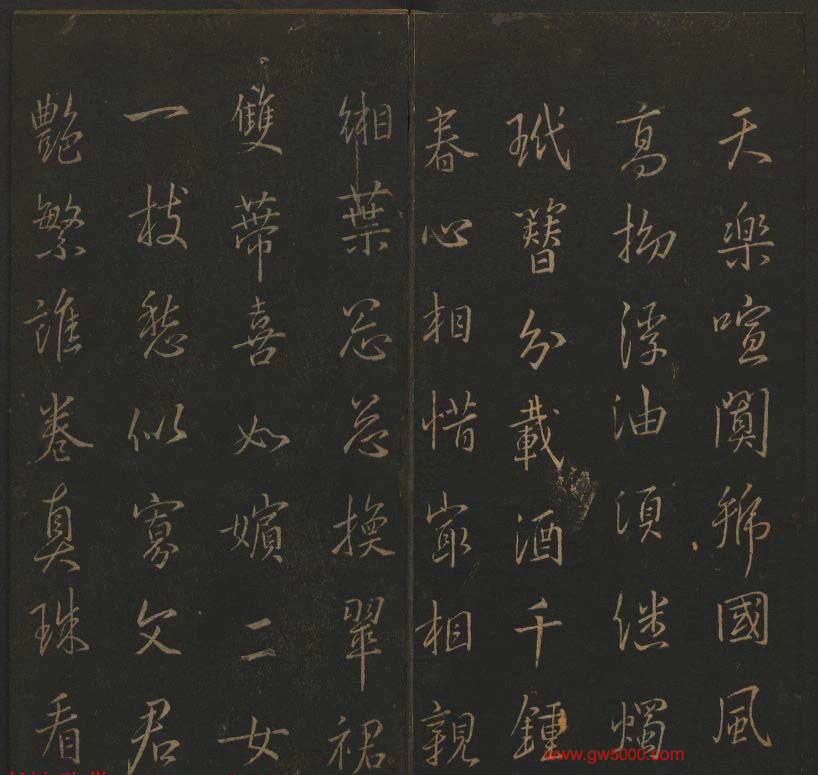 天樂喧闐虢國風
高浮油須继燭
玳簪分載酒千鍾
春心相惜㝡相親
緗葉忩忩換翠裙
雙蒂喜如嬪二女
一枝愁似寡文君
艷繁誰卷真珠看
www.gw5000.com